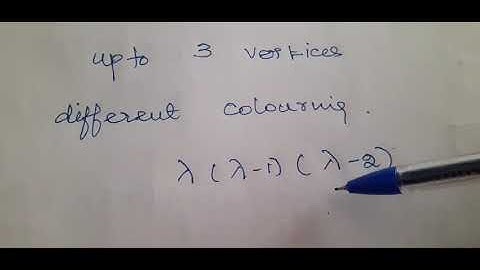 upto 3 vertices
different colouring.
λ (λ-1) (λ-2)